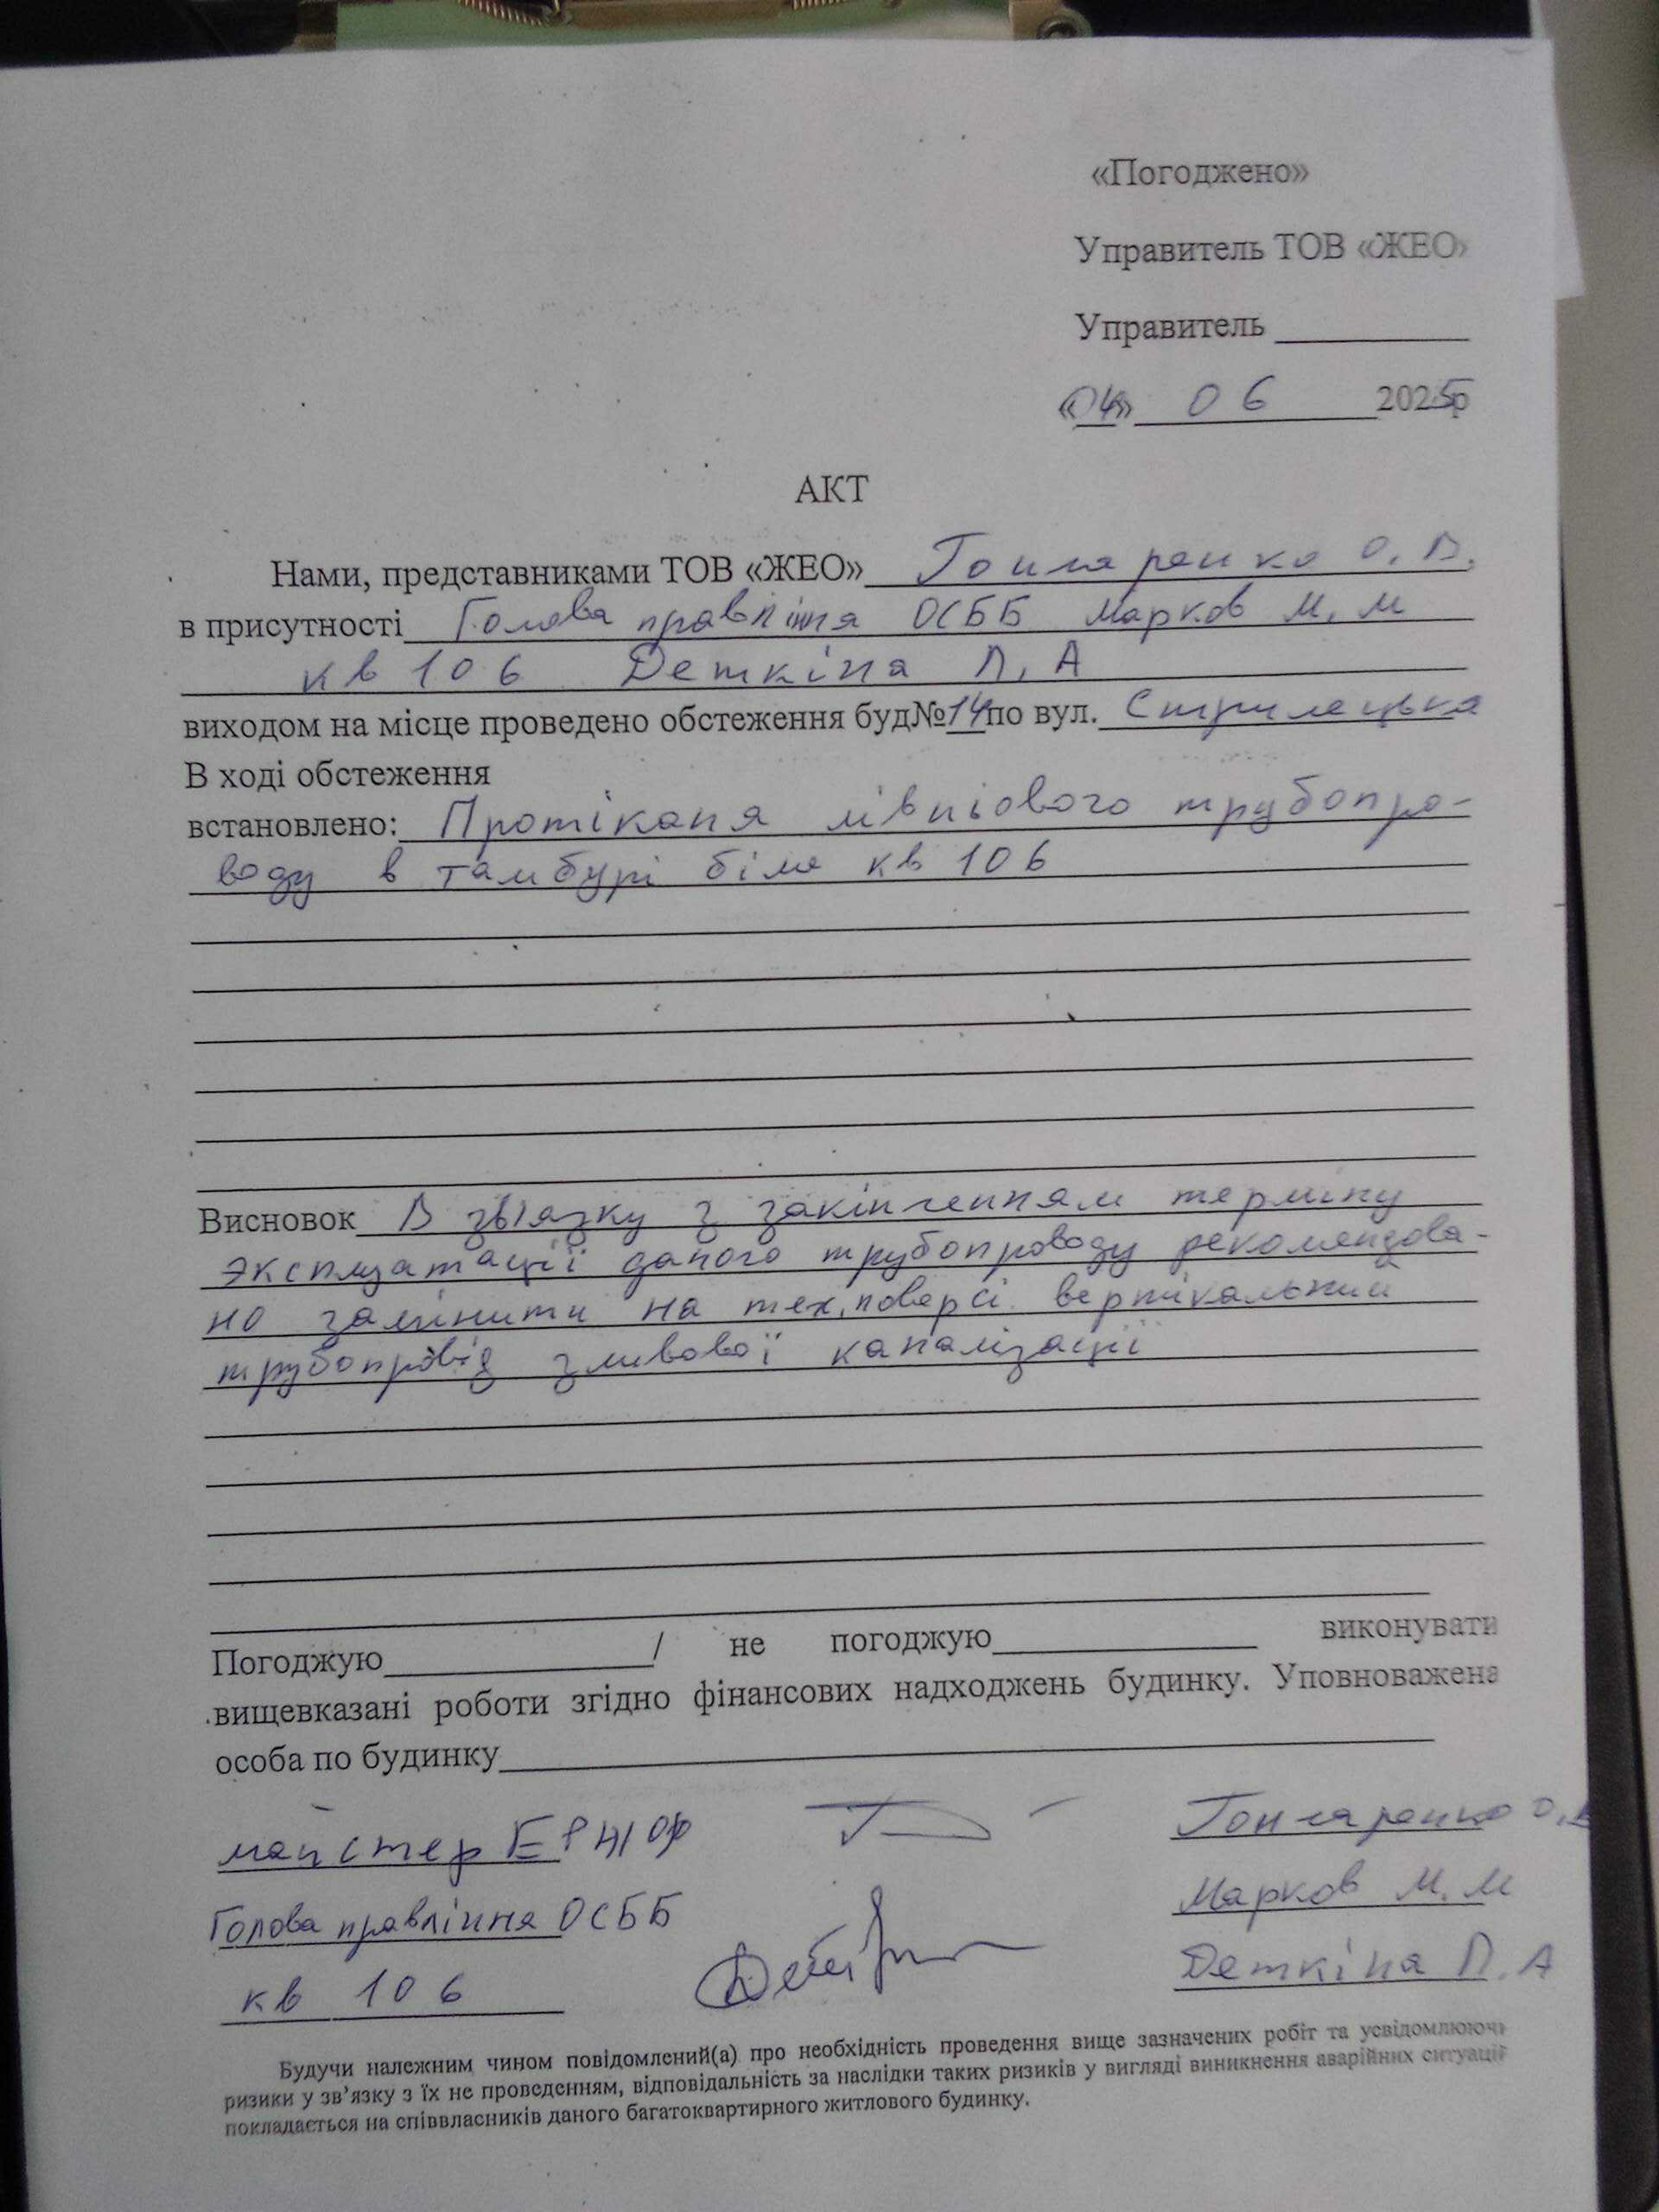 «Погоджено»
Управитель ТОВ «ЖЕО»
Управитель
«04» 06 2025р
АКТ
Нами, представниками ТОВ «ЖЕО» Гончаренко О. В.
в присутності Голова правління ОСББ Марков М. М
кв 106 Деткіна Л. А
виходом на місце проведено обстеження буд№14 по вул. Стрилецька
В ході обстеження
встановлено: Протіканя лівньового трубопро-
воду в тамбурі біля кв 106
Висновок В звязку з закінченням терміну
эксплуатації даного трубопроводу рекомендова-
но замінити на тех.поверсі вертікальний
трубопровід зливової каналізації
Погоджую / не погоджую виконувати
вищевказані роботи згідно фінансових надходжень будинку. Уповноважена
особа по будинку
майстер Гончаренко О.В
Голова правління ОСББ Марков М. М
кв 106 Деткіна Л. А
Будучи належним чином повідомлений(а) про необхідність проведення вище зазначених робіт та усвідомлюючи
ризики у зв’язку з їх не проведенням, відповідальність за наслідки таких ризиків у вигляді виникнення аварійних ситуацій
покладається на співвласників даного багатоквартирного житлового будинку.